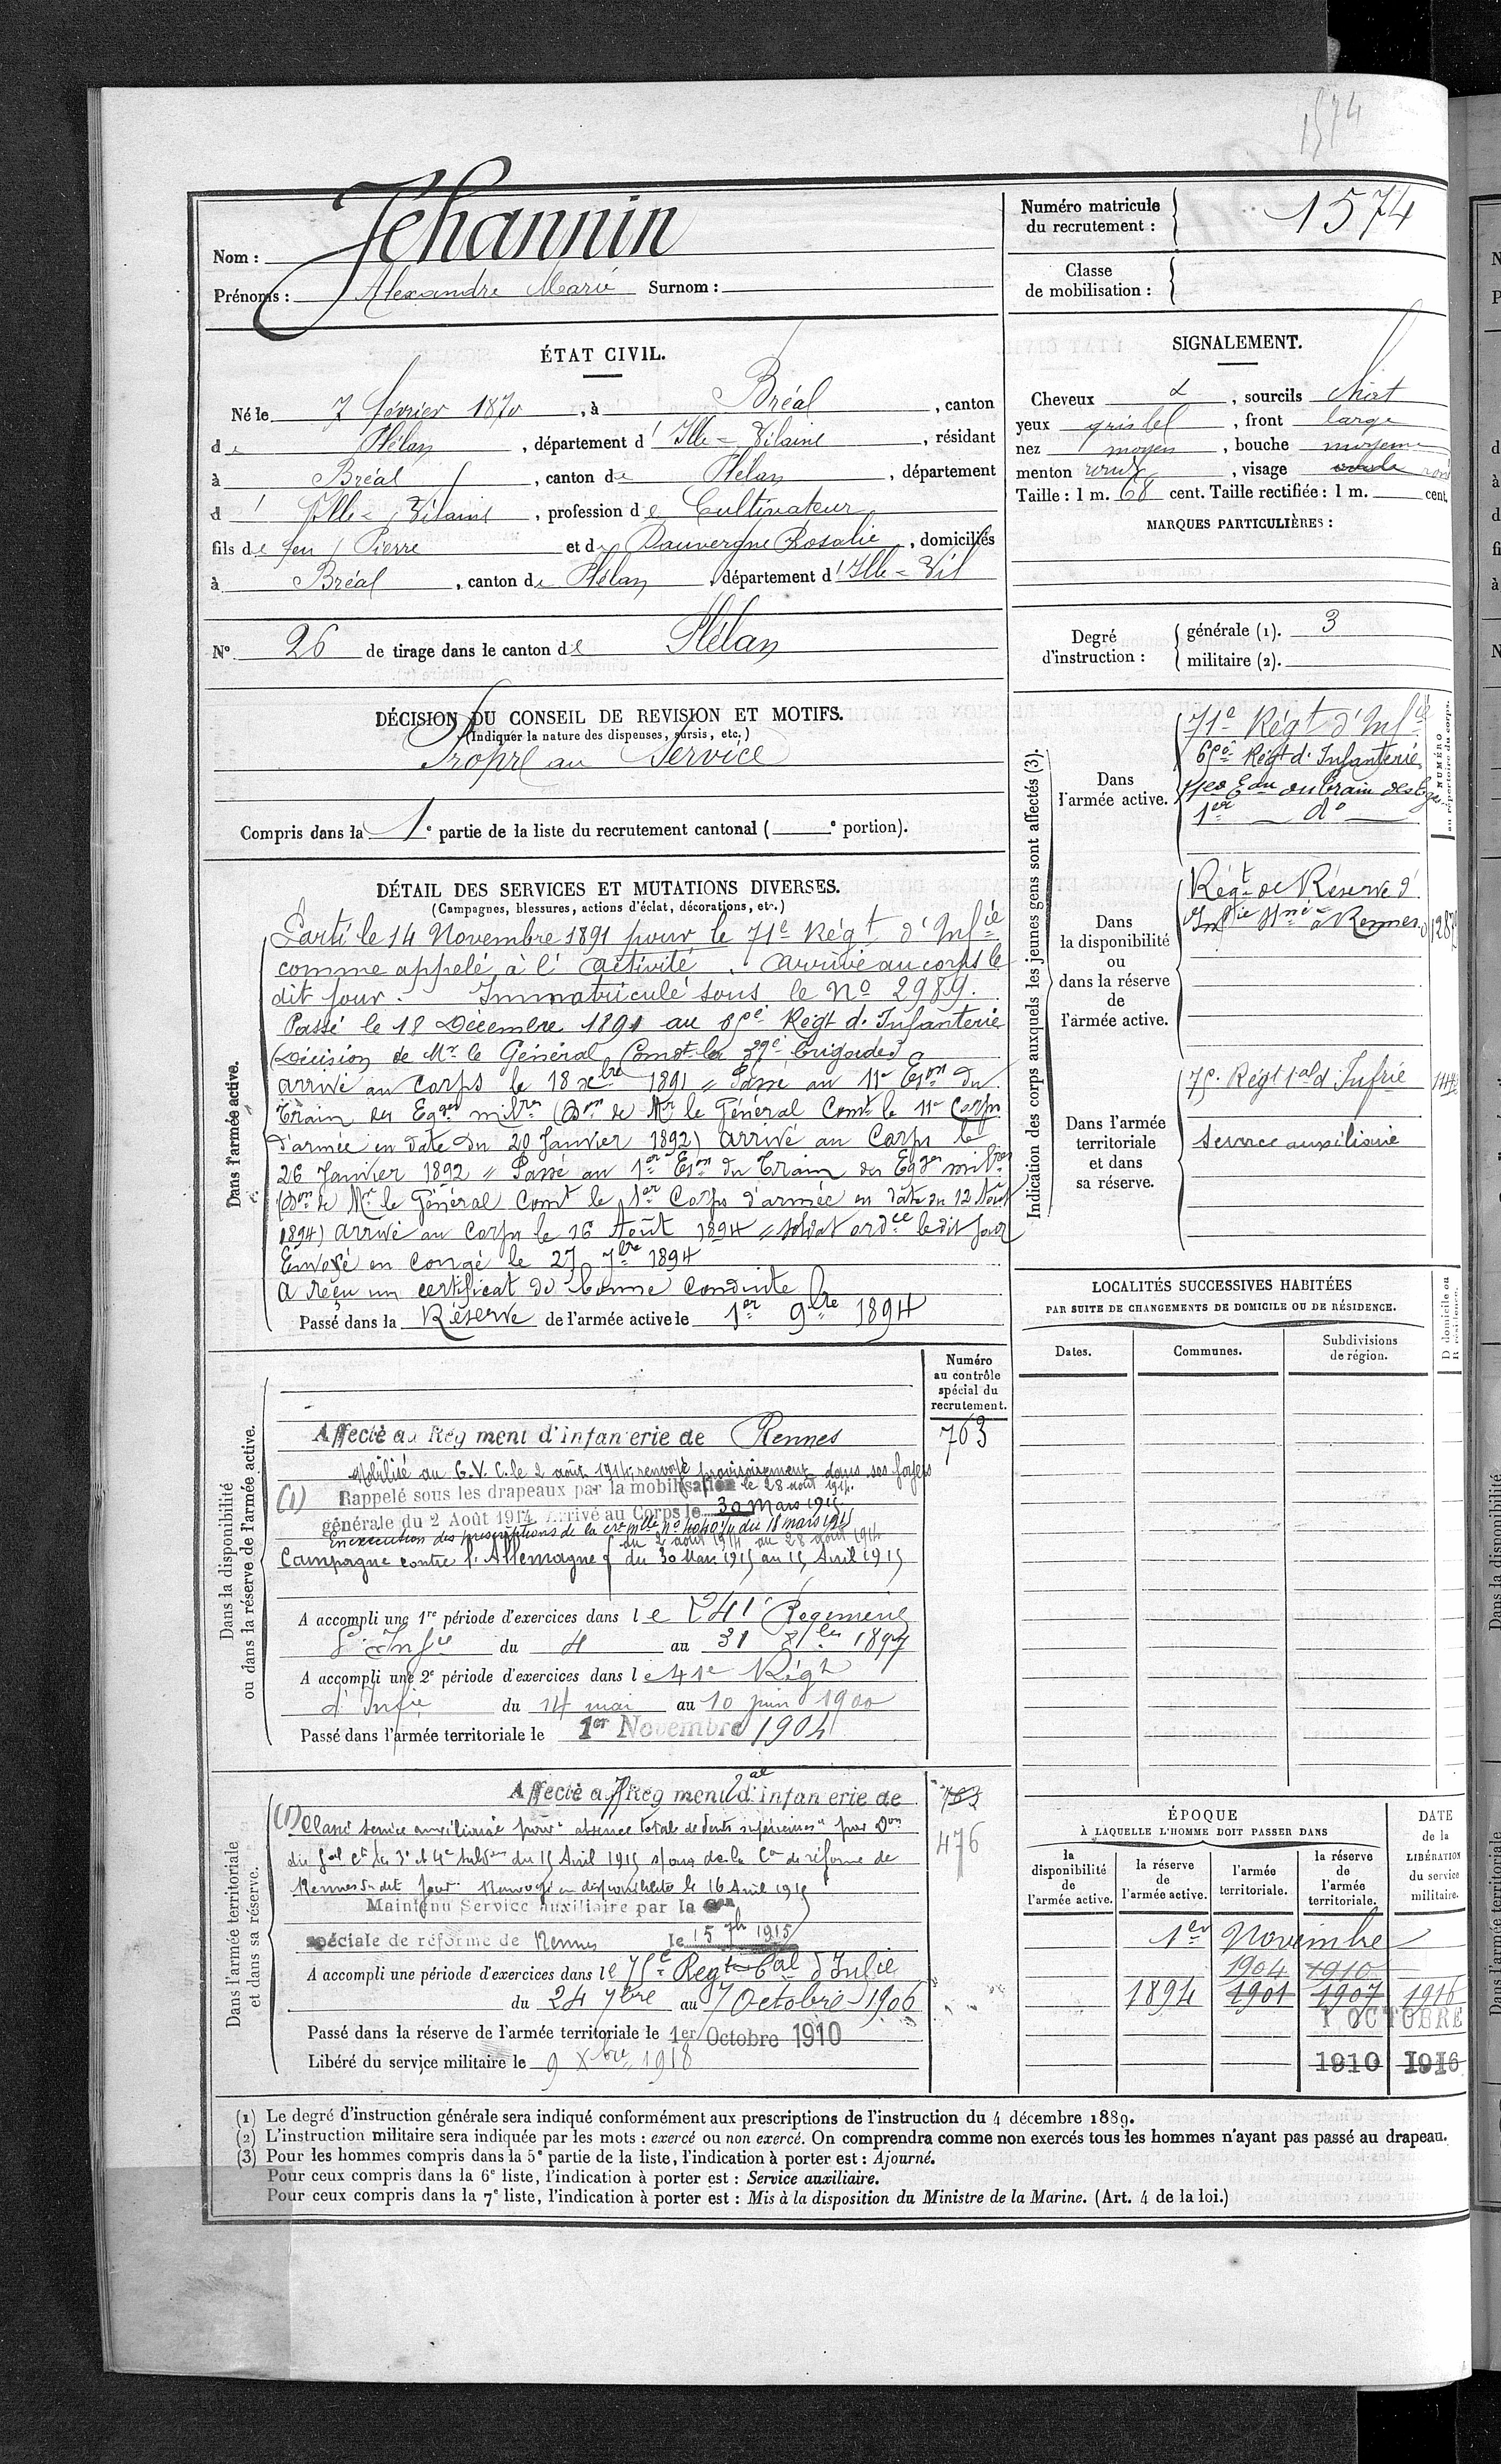 1574
Nom : Jehannin
Prénoms : Alexandre Marie Surnom :
Numéro matricule du recrutement : 1574
Classe de mobilisation :
ÉTAT CIVIL.
Né le 7 février 1870, à Bréal, canton
de Plélan, département d'Ille-Vilaine, résidant
à Bréal, canton de Plélan, département
d'Ille-Vilaine, profession de Cultivateur
fils de feu Pierre et de Dauvergne Rosalie, domiciliés
à Bréal, canton de Plélan, département d'Ille-Vil
N° 26 de tirage dans le canton de Plélan
SIGNALEMENT.
Cheveux &, sourcils chat
yeux gris bl, front large
nez moyen, bouche moyenne
menton rond, visage rond
Taille : 1 m. 68 cent. Taille rectifiée : 1 m. cent.
MARQUES PARTICULIÈRES :
Degré d'instruction :
générale (1). 3
militaire (2).
DÉCISION DU CONSEIL DE REVISION ET MOTIFS.
(Indiquer la nature des dispenses, sursis, etc.)
Propre au Service
Compris dans la 1e partie de la liste du recrutement cantonal ( e portion).
DÉTAIL DES SERVICES ET MUTATIONS DIVERSES.
(Campagnes, blessures, actions d'éclat, décorations, etc.)
Dans l'armée active.
Parti le 14 Novembre 1891 pour le 71e Régt d'Infie
comme appelé à l'activité. Arrivé au corps le
dit jour. Immatriculé sous le No 2989.
Passé le 18 Décembre 1891 au Régt d'Infanterie
(Décision de Mr le Général Comdt la brigade)
arrivé au corps le 18 xbre 1891 = Passé au 11e Eson du
Train des Eqges milres (Don de Mr le Général Comt le 11e Corps
d'armée en date du 20 Janvier 1892) arrivé au Corps le
26 Janvier 1892 = Passé au 1er Eson du Train des Eqges milres
(Don de Mr le Général Comt le 1er Corps d'armée en date du 12 Août
1894) arrivé au Corps le 16 Août 1894 = soldat ordce ledit jour
Envoyé en congé le 27 7bre 1894
A reçu un certificat de bonne conduite
Passé dans la Réserve de l'armée active le 1er 9bre 1894
Indication des corps auxquels les jeunes gens sont affectés (3).
NUMÉRO au répertoire du corps.
Dans l'armée active.
71e Régt d'Infie
Régt d'Infanterie
11e Eon du Train des Eqges
1er — do —
Dans la disponibilité ou dans la réserve de l'armée active.
Régt de Réserve d'
Infie à Rennes
Dans l'armée territoriale et dans sa réserve.
75e Régt tal d'Infrie
Service auxiliaire
LOCALITÉS SUCCESSIVES HABITÉES
PAR SUITE DE CHANGEMENTS DE DOMICILE OU DE RÉSIDENCE.
Dates. Communes. Subdivisions de région.
Numéro au contrôle spécial du recrutement.
763
Dans la disponibilité ou dans la réserve de l'armée active.
Affecté au Régiment d'infanterie de Rennes
Mobilisé au G.V.C. le 2 août 1914, renvoyé provisoirement dans ses foyers
le 28 août 1914.
(1) Rappelé sous les drapeaux par la mobilisation
générale du 2 Août 1914. Arrivé au Corps le 30 Mars 1915
En exécution des prescriptions de la cre mlle no du 18 mars 1915
du 2 août 1914 au 28 août 1914
Campagne contre l'Allemagne { du 30 Mars 1915 au 15 Avril 1915
A accompli une 1re période d'exercices dans le 41e Régiment
d'Infie du 4 au 31 1897
A accompli une 2e période d'exercices dans le 41e Régt
d'Infie du 14 mai au 10 juin 1900
Passé dans l'armée territoriale le 1er Novembre 1904
Dans l'armée territoriale et dans sa réserve.
Affecté au Régiment tal d'infanterie de
763
476
(1) Classé service auxiliaire pour absence totale de dents supérieures par Don
du Gal Ct les 3e et 4e Subdons du 15 Avril 1915 s/avis de la Con de réforme de
Rennes du dit jour. Renvoyé en disponibilité le 16 Avril 1915
Maintenu Service Auxiliaire par la Con
spéciale de réforme de Rennes le 15 1915
A accompli une période d'exercices dans le 75e Regt tal d'Infie
du 24 7bre au 7 Octobre 1906
Passé dans la réserve de l'armée territoriale le 1er Octobre 1910
Libéré du service militaire le 9 Xbre 1918
ÉPOQUE
À LAQUELLE L'HOMME DOIT PASSER DANS
la disponibilité de l'armée active.
la réserve de l'armée active.
l'armée territoriale.
la réserve de l'armée territoriale.
DATE de la LIBÉRATION du service militaire.
1er Novembre
1904 1910
1894 1901 1907 1916
1 OCTOBRE
1910 1916
(1) Le degré d'instruction générale sera indiqué conformément aux prescriptions de l'instruction du 4 décembre 1889.
(2) L'instruction militaire sera indiquée par les mots : exercé ou non exercé. On comprendra comme non exercés tous les hommes n'ayant pas passé au drapeau.
(3) Pour les hommes compris dans la 5e partie de la liste, l'indication à porter est : Ajourné.
Pour ceux compris dans la 6e liste, l'indication à porter est : Service auxiliaire.
Pour ceux compris dans la 7e liste, l'indication à porter est : Mis à la disposition du Ministre de la Marine. (Art. 4 de la loi.)